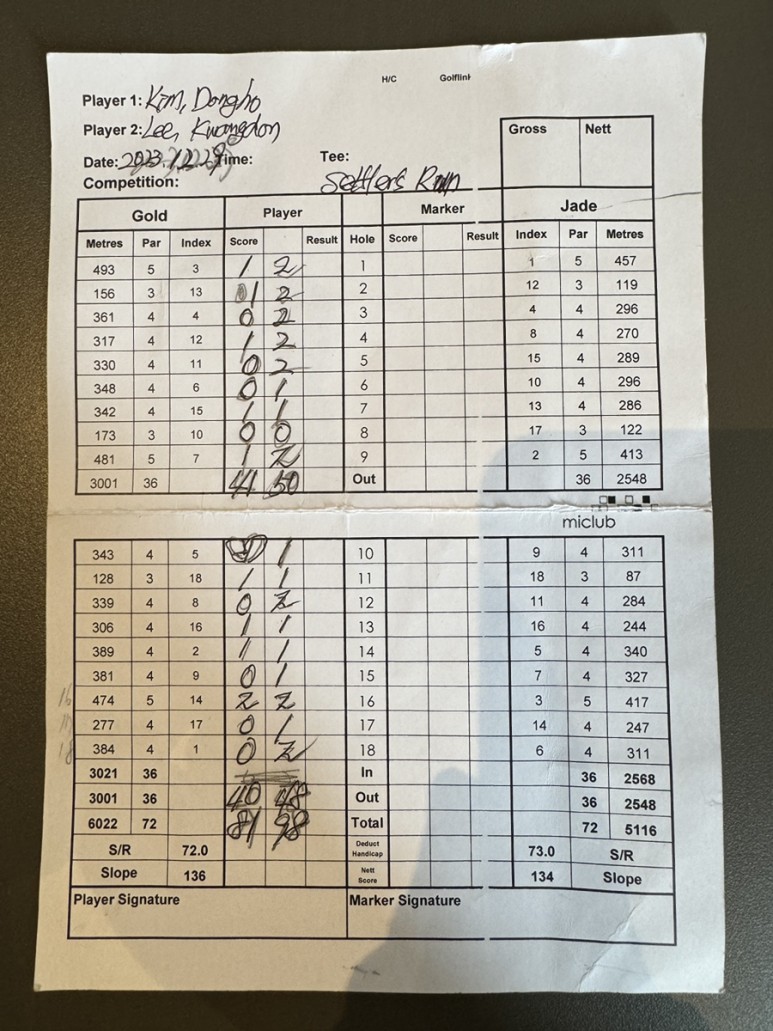 H/C Golflink
Player 1: Kim, Dongho
Player 2: Lee, Kwangdon
Gross Nett
Date: 2023.12.29 Time: Tee:
Competition: Settlers Run
Gold Player Marker Jade
Metres Par Index Score Result Hole Score Result Index Par Metres
493 5 3 1 2 1 1 5 457
156 3 13 1 2 2 12 3 119
361 4 4 0 2 3 4 4 296
317 4 12 1 2 4 8 4 270
330 4 11 0 2 5 15 4 289
348 4 6 0 1 6 10 4 296
342 4 15 1 1 7 13 4 286
173 3 10 0 0 8 17 3 122
481 5 7 1 2 9 2 5 413
3001 36 41 50 Out 36 2548
miclub
343 4 5 1 10 9 4 311
128 3 18 1 1 11 18 3 87
339 4 8 0 2 12 11 4 284
306 4 16 1 1 13 16 4 244
389 4 2 1 1 14 5 4 340
381 4 9 0 1 15 7 4 327
16 474 5 14 2 2 16 3 5 417
17 277 4 17 0 1 17 14 4 247
18 384 4 1 0 2 18 6 4 311
3021 36 In 36 2568
3001 36 40 48 Out 36 2548
6022 72 81 98 Total 72 5116
S/R 72.0 Deduct Handicap 73.0 S/R
Slope 136 Nett Score 134 Slope
Player Signature Marker Signature